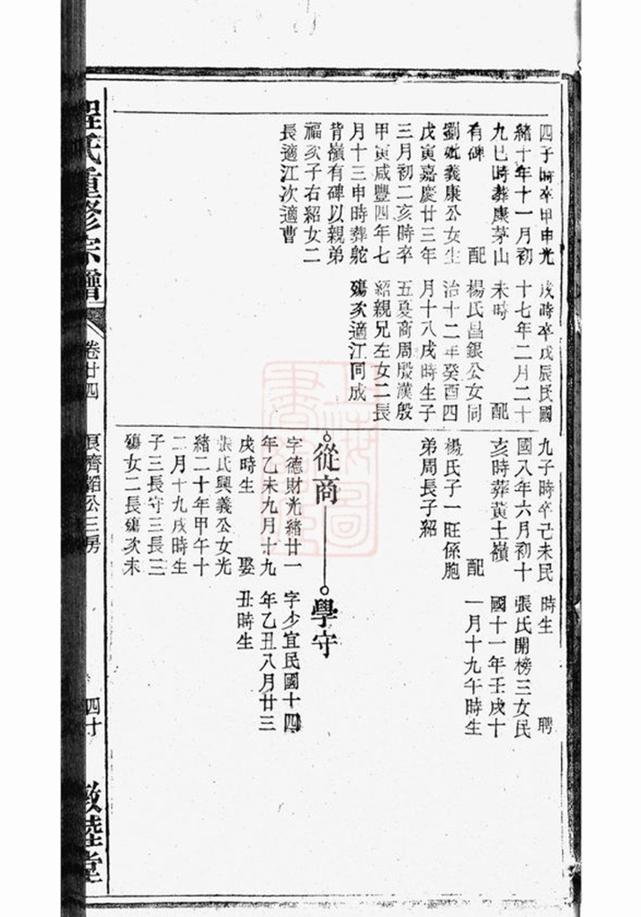 四子時卒甲申光
緒十年十一月初
九巳時葬康茅山
有碑 配
劉毓義康公女生
戊寅嘉慶廿三年
三月初二亥時卒
甲寅咸豐四年七
月十三申時葬鴕
背嶺有碑以親弟
福次子右紹女二
長適江次適曹
戌時卒戊辰民國
十七年二月二十
未時 配
楊氏昌銀公女同
治十二年癸酉四
月十八戌時生子
五夏商周殷漢殷
紹親兄左女二長
殤次適江同成
九子時卒己未民
國八年六月初十
亥時葬黃土嶺
配
楊氏子一旺係胞
弟周長子紹
從商
字德財光緒廿一
年乙未九月十九
戌時生 娶
張氏興義公女光
緒二十年甲午十
二月十九戌時生
子三長守三長三
殤女二長殤次未
時生 聘
張氏開榜三女民
國十一年壬戌十
一月十九午時生
學守
字少宜民國十四
年乙丑八月廿三
丑時生
程氏重修宗譜
卷廿四
公三房
四十
敦睦堂